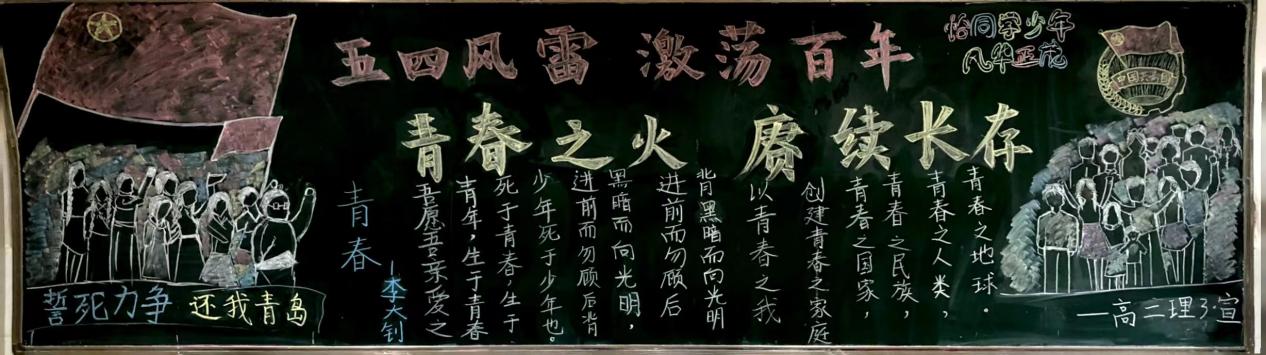 五四风雷 激荡百年
青春之火 赓续长存
恰同学少年
风华正茂
中国共青团
青春
—李大钊
吾愿吾亲爱之
青年，生于青春
死于青春，生于
少年死于少年也。
进前而勿顾后背
黑暗而向光明，
进前而勿顾后
背黑暗而向光明
以青春之我
创建青春之家庭
青春之国家，
青春之民族，
青春之人类，
青春之地球。
誓死力争 还我青岛
—高二理3·宣